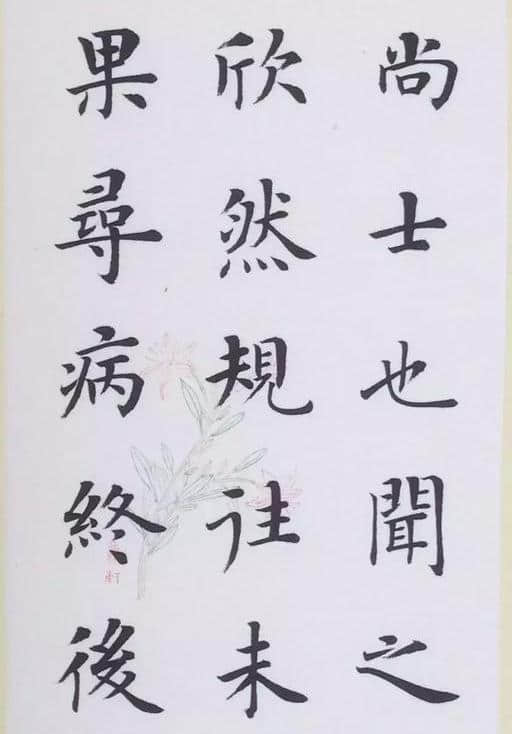 尚士也聞之
欣然規往未
果尋病終後
軒